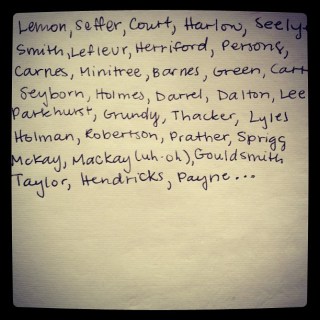 Lemon, Seffer, Court, Harlow, Seely-
Smith, Lefleur, Herriford, Persons,
Carnes, Minitree, Barnes, Green, Cart
Seyborn, Holmes, Darrel, Dalton, Lee
Parkhurst, Grundy, Thacker, Lyles
Holman, Robertson, Prather, Sprigg
McKay, Mackay (uh-oh), Gouldsmith
Taylor, Hendricks, Payne...